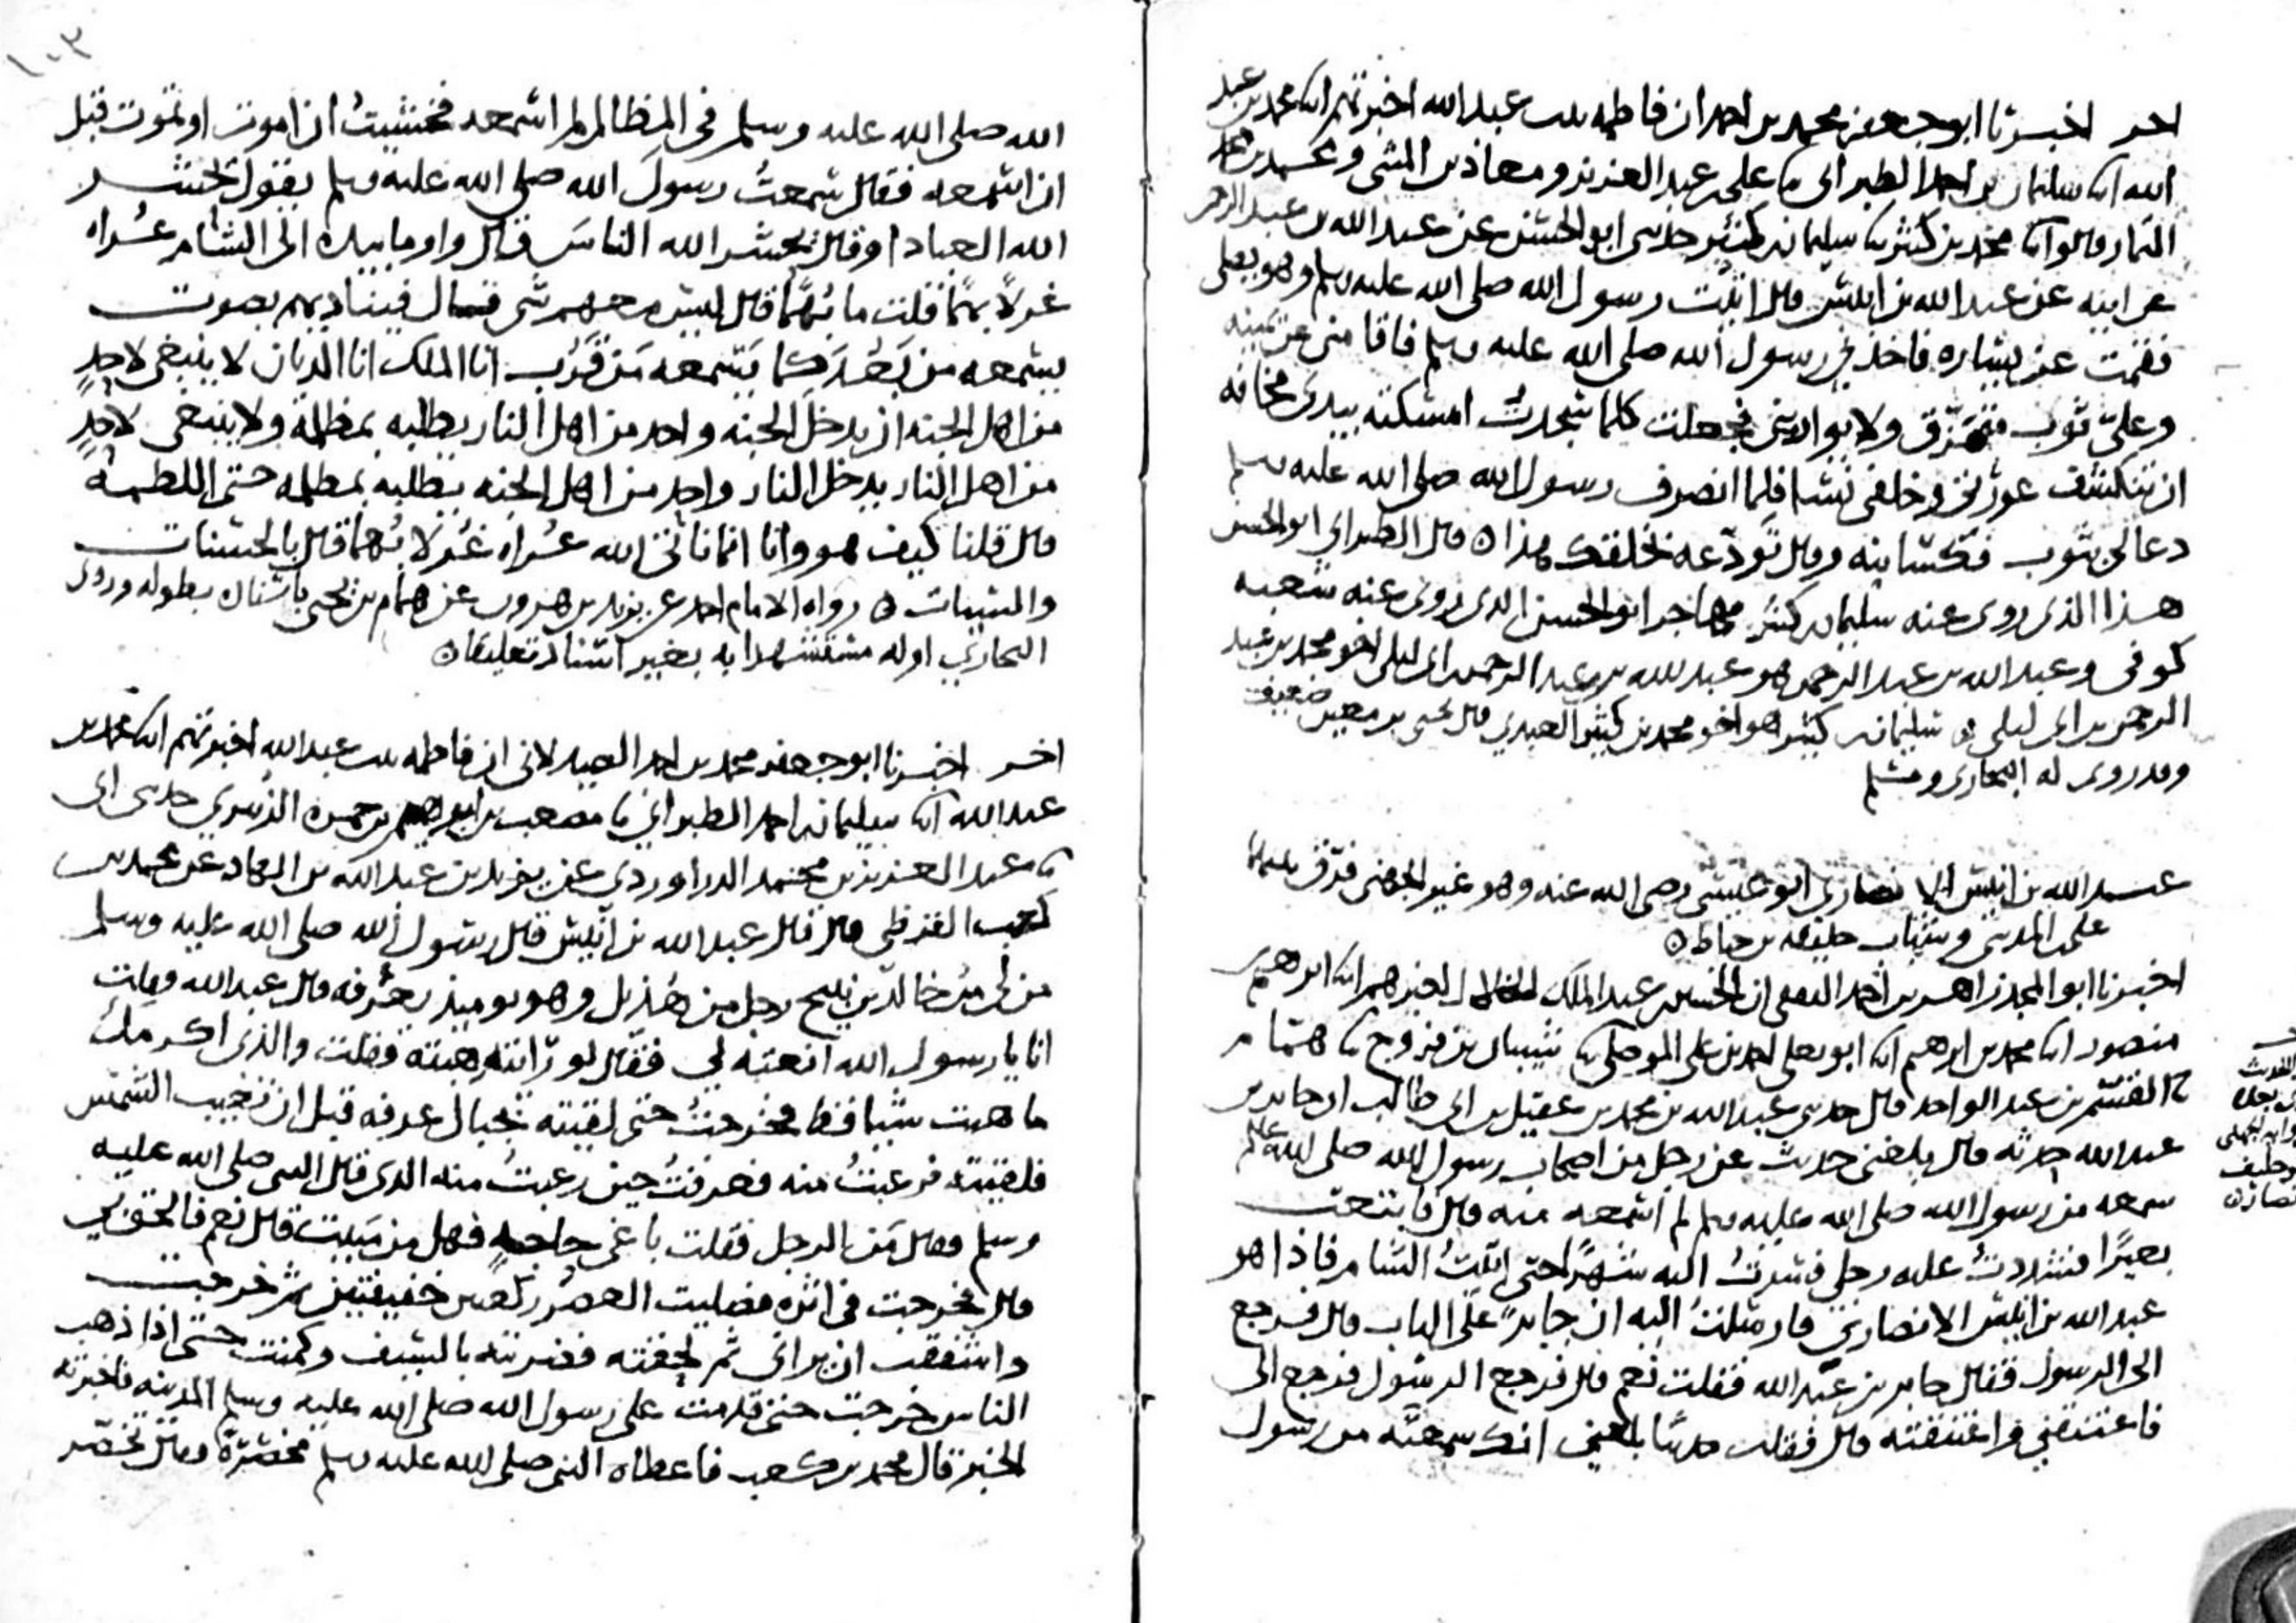 اخر اخبرنا ابو جعفر محمد بن احمد ان فاطمه بنت عبد الله اخبرتهم ابنا محمد بن عبد
الله ابنا سليمان بن احمد الطبراني ثنا علي بن عبد العزيز ومعاذ بن المثنى ومحمد بن محمد
التمار قالوا ثنا محمد بن كثير ثنا سليمان بن كثير حدثني ابو الحسن عن عبد الله بن عبد الرحمن
عن ابيه عن عبد الله بن انيس قال اتيت رسول الله صلى الله عليه وسلم وهو يصلي
فقمت عن يساره فاخذني رسول الله صلى الله عليه وسلم فاقامني عن يمينه
وعلي ثوب متمزق ولا يواريني فجعلت كلما سجدت امسكته بيدي مخافه
ان تنكشف عورتي وخلفي نسا فلما انصرف رسول الله صلى الله عليه وسلم
دعا لي بثوب فكسانيه وقال تودعه بخلقك هذا ٥ قال الطبراني ابو الحسن
هذا الذي روى عنه سليمان بن كثير مهاجر ابو الحسن الذي روى عنه شعبه
كوفي وعبد الله بن عبد الرحمن هو عبد الله بن عبد الرحمن بن ابي ليلى اخو محمد بن عبد
الرحمن بن ابي ليلى سليمان بن كثير هو اخو محمد بن كثير العبدي قال يحيى بن معين ضعيف
وقد روى له البخاري ومسلم
عبد الله بن انيس الانصاري ابو عيسى رضي الله عنه وهو غير الجهني فرق بينهما
علي بن المديني وشباب خليفه بن خياط ٥
اخبرنا ابو المجد زاهر بن احمد الثقفي ان الحسين بن عبد الملك الخلال اخبرهم ابنا ابرهيم بن
منصور ابنا محمد بن ابرهيم ابنا ابو يعلى احمد بن علي الموصلي ثنا شيبان بن فروخ ثنا همام
ثنا القسم بن عبد الواحد قال حدثني عبد الله بن محمد بن عقيل بن ابي طالب ان جابر بن
عبد الله حدثه قال بلغني حديث عن رجل من اصحاب رسول الله صلى الله عليه وسلم
سمعه من رسول الله صلى الله عليه وسلم لم اسمعه منه قال فابتعت
بعيرا فشددت عليه رحلي فسرت اليه شهرا حتى اتيت الشام فاذا هو
عبد الله بن انيس الانصاري فارسلت اليه ان جابر على الباب قال فرجع
الي الرسول فقال جابر بن عبد الله فقلت نعم قال فرجع الرسول فرجع الي
فاعتنقني واعتنقته قال فقلت حديثا بلغني انك سمعته من رسول
الله صلى الله عليه وسلم في المظالم لم اسمعه فخشيت ان اموت او تموت قبل
ان اسمعه فقال سمعت رسول الله صلى الله عليه وسلم يقول يحشر
الله العباد او قال يحشر الله الناس قال واومأ بيده الى الشام عراه
غرلا بهما قلت ما بهما قال ليس معهم شي قال فيناديهم بصوت
يسمعه من بعد كما يسمعه من قرب انا الملك انا الديان لا ينبغي لاحد
من اهل الجنه ان يدخل الجنه واحد من اهل النار يطلبه بمظلمة ولا ينبغي لاحد
من اهل النار يدخل النار واحد من اهل الجنه يطلبه بمظلمه حتى اللطمة
قال قلنا كيف هو وانا انما ناتي الله عراه غرلا بهما قال بالحسنات
والسيئات ٥ رواه الامام احمد عن يزيد بن هرون عن همام بن يحيى باسناده بطوله وروى
البخاري اوله مستشهدا به بغير اسناد تعليقا ٥
اخر اخبرنا ابو جعفر محمد بن احمد الصيدلاني ان فاطمه بنت عبد الله اخبرتهم ابنا محمد بن
عبد الله ابنا سليمان بن احمد الطبراني ثنا مصعب بن ابراهيم بن حمزه الزبيري حدثني ابي
ثنا عبد العزيز بن محمد الدراوردي عن يزيد بن عبد الله بن الهاد عن محمد بن
كعب القرظي قال قال عبد الله بن انيس قال رسول الله صلى الله عليه وسلم
من لي من خالد بن نبيح رجل من هذيل وهو يوميذ بعرفه قال عبد الله وقلت
انا يا رسول الله انعته لي فقال لو رايته هبته فقلت والذي اكرمك
ما هبت شيا قط فخرجت حتى لقيته بجبال عرفه قبل ان تغيب الشمس
فلقيته فرعبت منه فعرفت حين رعبت منه الذي قال النبي صلى الله عليه
وسلم فقال من الرجل فقلت باغي حاجه فهل من مبيت قال نعم فالحق بي
قال فخرجت في اثره فصليت العصر ركعتين خفيفتين ثم خرجت
واشفقت ان يراني ثم لحقته فضربته بالسيف وكمنت حتى اذا ذهب
الناس خرجت حتى قدمت على رسول الله صلى الله عليه وسلم المدينه فاخبرته
الخبر قال محمد بن كعب فاعطاه النبي صلى الله عليه وسلم مخصرة وقال تخصر